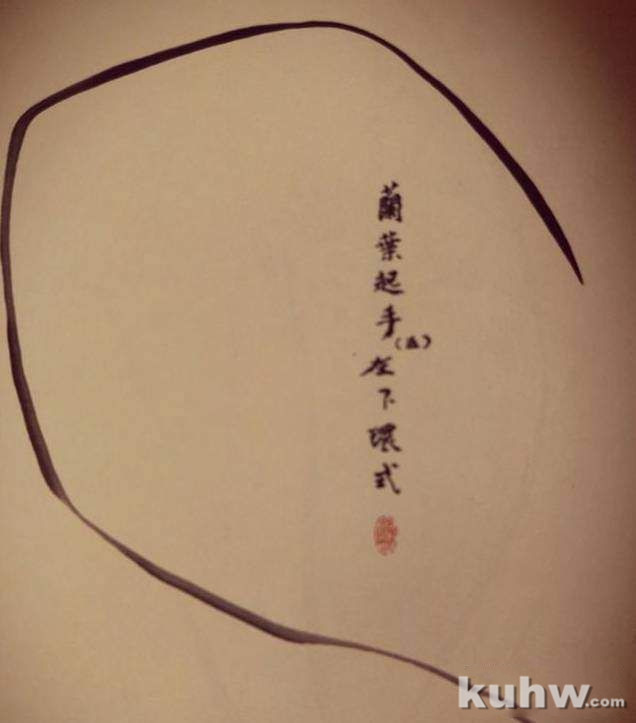 蘭葉起手
左下環式
kuhw.com